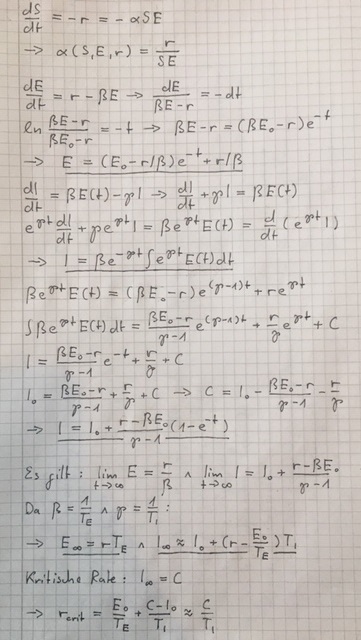 dS/dt = -r = -αSE
→ α(S,E,r) = r/SE
dE/dt = r - βE → dE/(βE-r) = -dt
ln (βE-r)/(βE₀-r) = -t → βE-r = (βE₀-r)e^-t
→ E = (E₀-r/β)e^-t + r/β
dI/dt = βE(t) - γI → dI/dt + γI = βE(t)
e^γt dI/dt + γe^γt I = βe^γt E(t) = d/dt (e^γt I)
→ I = βe^-γt ∫e^γt E(t)dt
βe^γt E(t) = (βE₀-r)e^(γ-1)t + re^γt
∫βe^γt E(t)dt = (βE₀-r)/(γ-1) e^(γ-1)t + r/γ e^γt + C
I = (βE₀-r)/(γ-1) e^-t + r/γ + C
I₀ = (βE₀-r)/(γ-1) + r/γ + C → C = I₀ - (βE₀-r)/(γ-1) - r/γ
→ I = I₀ + (r-βE₀)/(γ-1) (1-e^-t)
Es gilt: lim t→∞ E = r/β ∧ lim t→∞ I = I₀ + (r-βE₀)/(γ-1)
Da β = 1/T_E ∧ γ = 1/T_I :
→ E∞ = rT_E ∧ I∞ ≈ I₀ + (r - E₀/T_E)T_I
Kritische Rate: I∞ = C
→ r_crit = E₀/T_E + (C-I₀)/T_I ≈ C/T_I